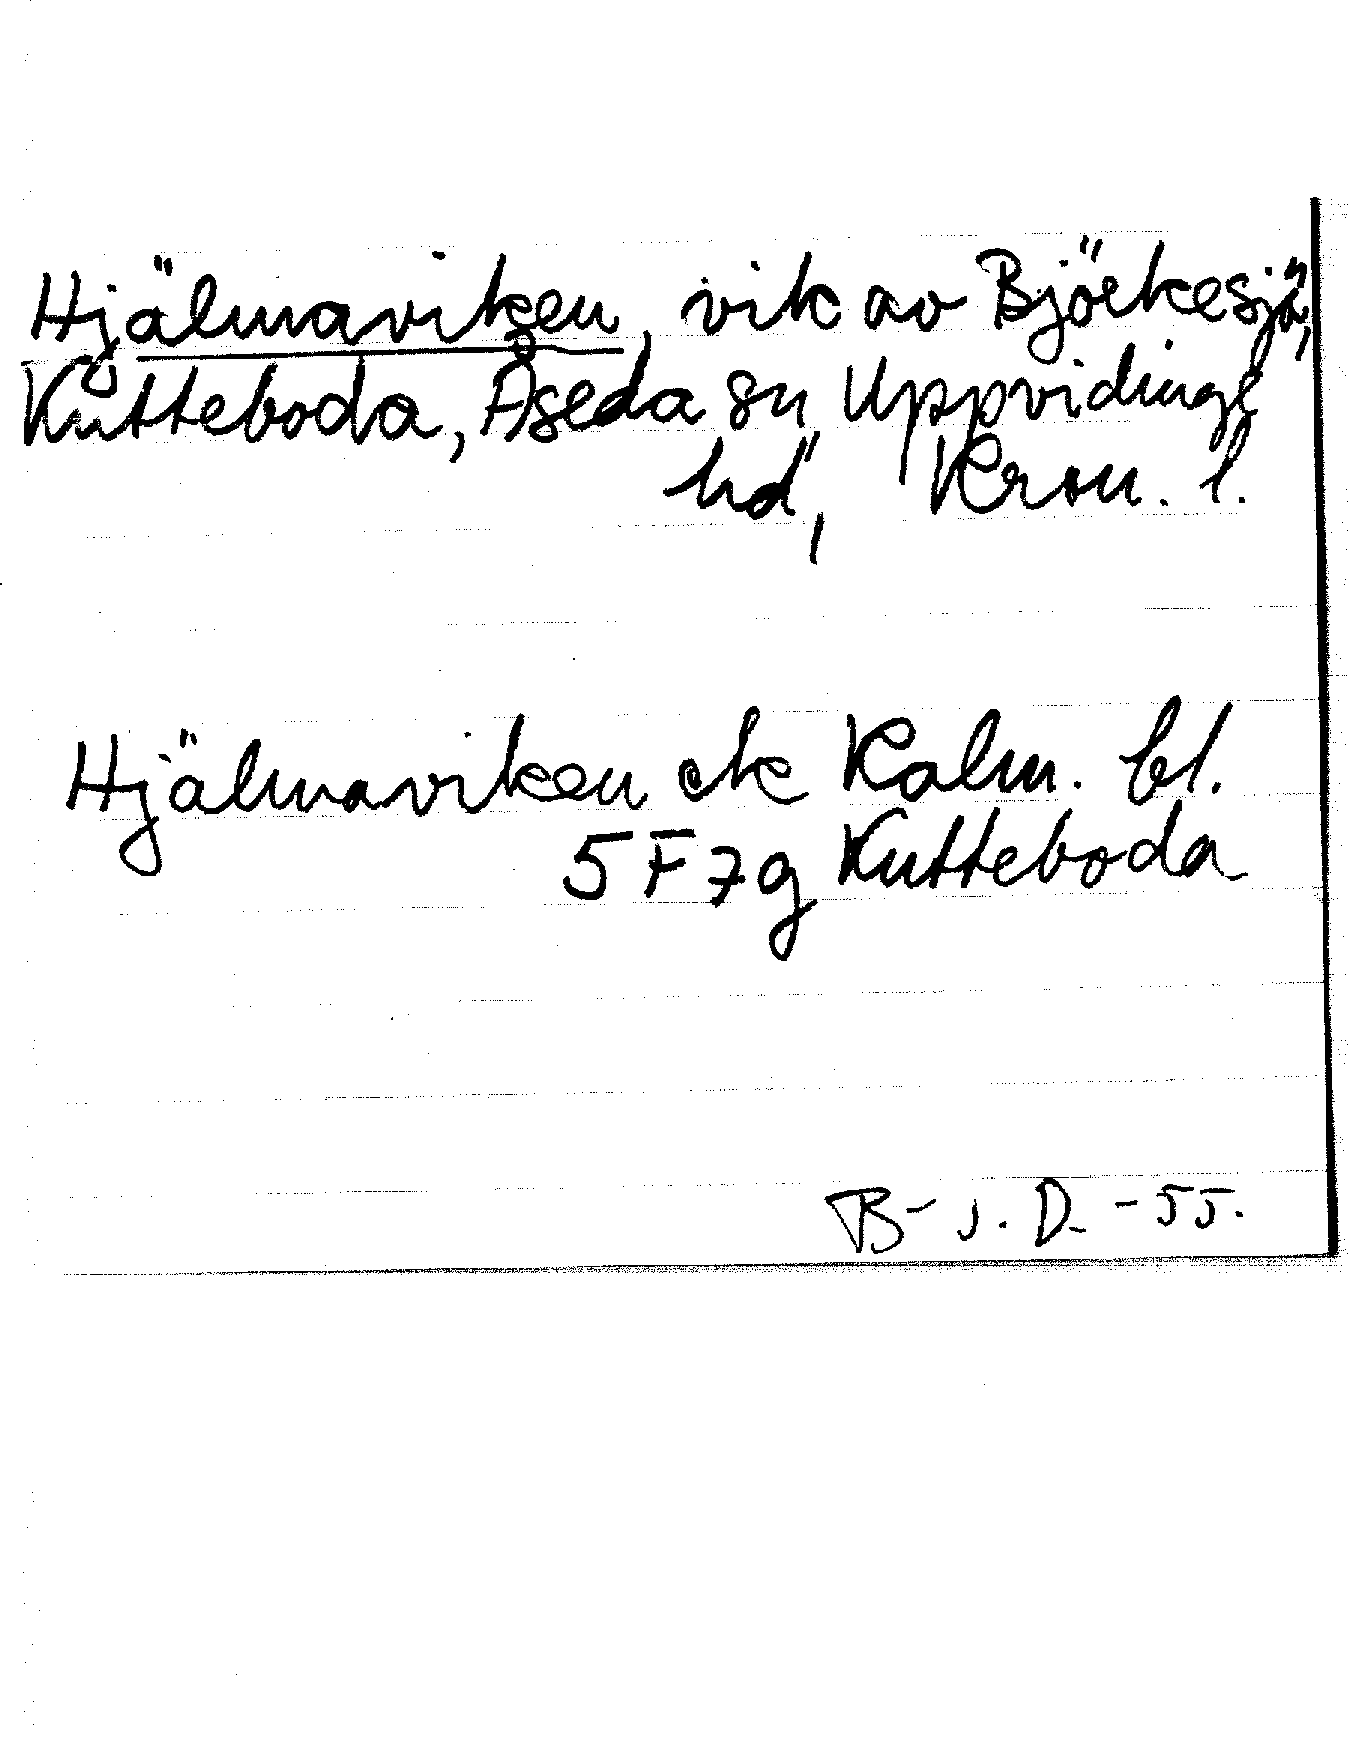 Hjälmaviken, vik av Björkesjö,
Kutteboda, Åseda sn Uppvidinge
hd, Kron. l.
Hjälmaviken ek Kalm. bl.
5 F 7g Kutteboda
B-J. D. -55.